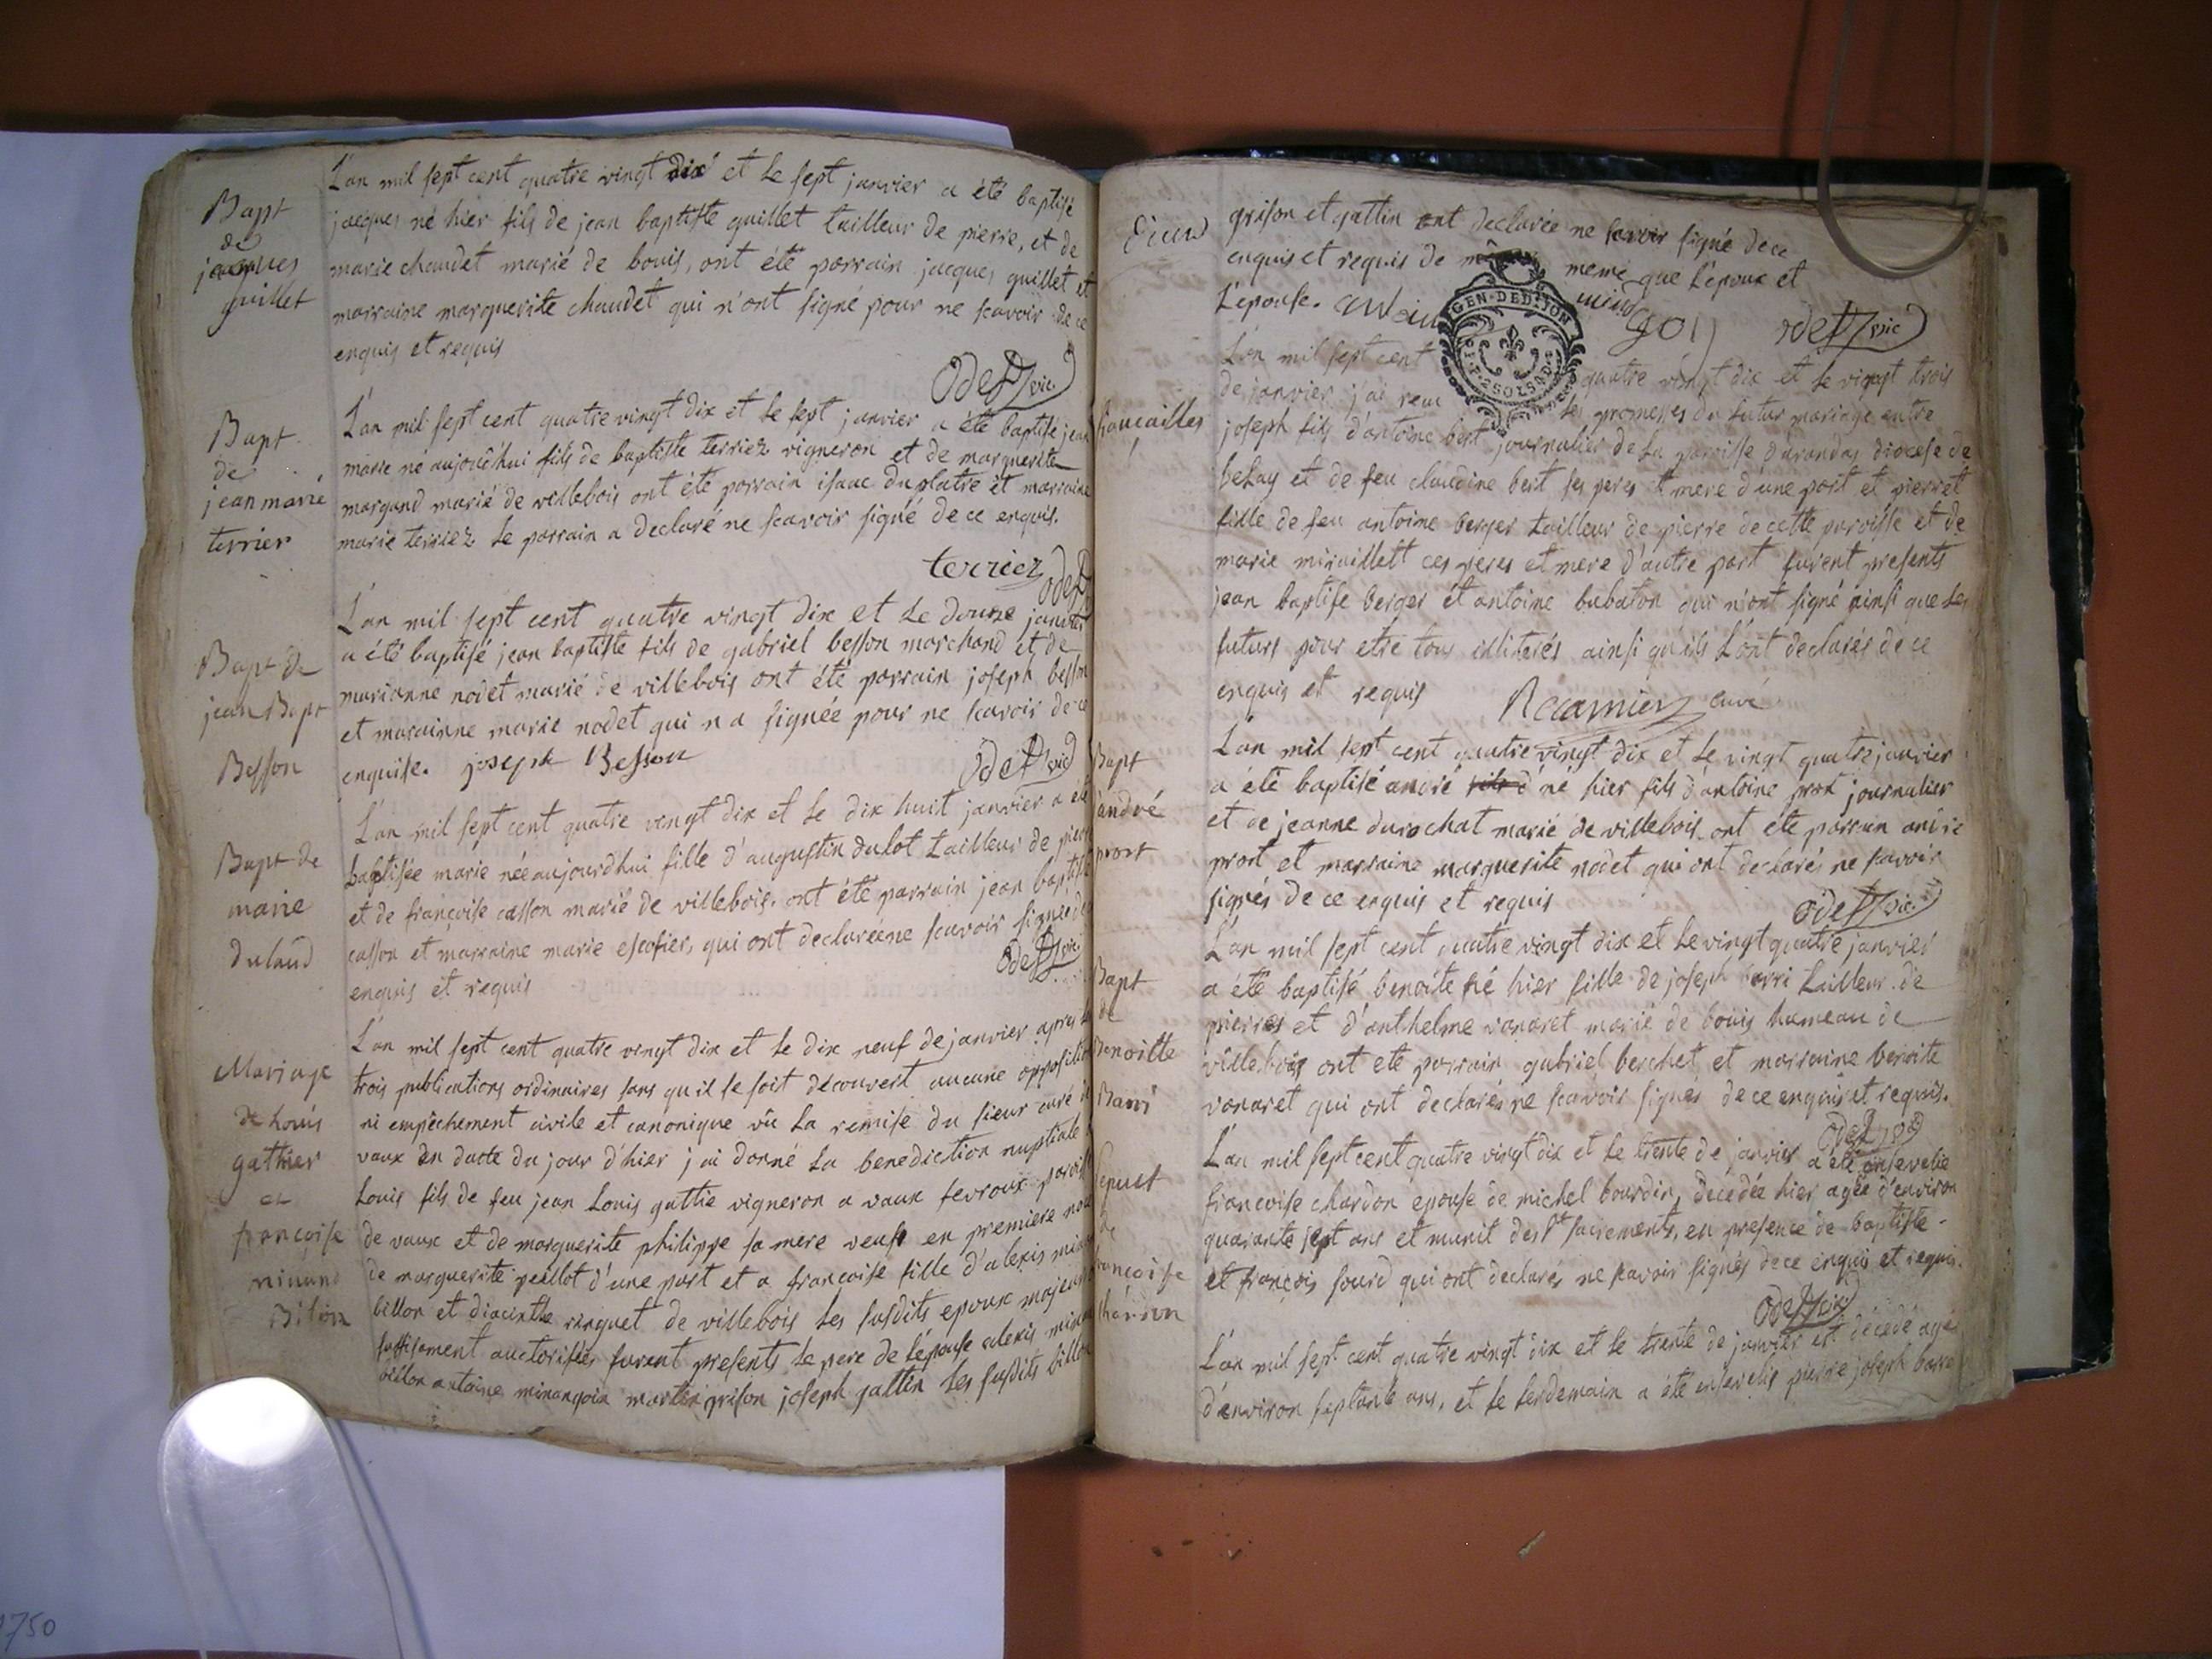 Bapt
de
jacques
guillet
L'an mil sept cent quatre vingt dix et le sept janvier a été baptisé
jacques né hier fils de jean baptiste guillet tailleur de pierre, et de
marie chaudet marié de bouis, ont été porrain jacques guillet et
marraine marguerite chaudet qui n'ont signé pour ne scavoir de ce
enquis et requis
Odet vic
Bapt
de
jean marie
terrier
L'an mil sept cent quatre vingt dix et le sept janvier a été baptisé jean
marie né aujoud'hui fils de baptiste terriez vigneron et de marguerite
margand marié de villebois ont été porrain isaac duplatre et marraine
marie terriez le parrain a declaré ne scavoir signé de ce enquis.
terriez Odet
Bapt de
jean Bapt
Besson
L'an mil sept cent quatre vingt dix et le douze janvier
a été baptisé jean baptiste fils de gabriel besson marchand et de
marianne nodet marié de villebois ont été porrain joseph besson
et marainne marie nodet qui n a signée pour ne scavoir de ce
enquise. joseph Besson Odet vic
Bapt de
marie
dulaud
L'an mil sept cent quatre vingt dix et le dix huit janvier a été
baptisée marie née aujourd'hui fille d'augustin dulot tailleur de pierre
et de françoise casson marié de villebois. ont été parrain jean baptiste
casson et marraine marie escofier, qui ont declaréene scavoir signee de ce
enquis et requis Odet vic
Mariage
de Louis
gathier
et
françoise
minand
Bilion
L'an mil sept cent quatre vingt dix et le dix neuf de janvier apres les
trois publications ordinaires sans qu il se soit découvert aucune opposition
ni empêchement civile et canonique vû la remise du sieur curé de
vaux en dacte du jour d'hier j ai donné la benediction nuptiale
Louis fils de feu jean Louis gattie vigneron a vaux fevroux paroisse
de vaux et de marguerite philippe sa mere veuf en premiere noce
de marguerite peillot d'une part et a françoise fille d'alexis
billon et diacinthe ringuet de villebois les susdits epoux majeurs
suffisament auctorisées furent presents le pere de l'épouse alexis
billon antoine minangoin martin grison joseph gattin les susdits billon
grison et gattin ont declarée ne scavoir signé de ce
enquis et requis de meme que l'epoux et
L'epouse. goi Odet vic
GEN·DE DIJON
fiancailles
L'an mil sept cent quatre vingt dix et le vingt trois
de janvier j'ai recu les promesses du futur mariage entre
joseph fils d'antoine bert journalier de la paroisse d'arandas diocese de
belay et de feu claudine bert ses peres et mere d'une part et pierret
fille de feu antoine berger tailleur de pierre de cette paroisse et de
marie miraillett ces peres et mere d'autre part furent presents
jean baptise berger et antoine babaton qui n'ont signé ainsi que les
futurs pour etre tous illiterés ainsi qu ils l'ont declarés de ce
enquis et requis Récamier curé
Bapt
andré
prost
L'an mil sept cent quatre vingt dix et le vingt quatre janvier
a été baptisé andré né hier fils d'antoine prost journalier
et de jeanne durochat marié de villebois ont été parrain andré
prost et marraine marguerite nodet qui ont declarés ne scavoir
signés de ce enquis et requis Odet vic.
Bapt
de
Benoitte
Barri
L'an mil sept cent quatre vingt dix et le vingt quatre janvier
a été baptisé benoite né hier fille de joseph barri tailleur de
pierres et d'anthelme vanaret marié de bouis hameau de
villebois ont ete porrain gabriel berchet et marraine benoite
vanaret qui ont declarés ne scavoir signés de ce enquis et requis.
Odet vic
Sepult
de
françoise
chardon
L'an mil sept cent quatre vingt dix et le trente de janvier a été ensevelie
francoise chardon epouse de michel bourdin, decedée hier agée d'environ
quarante sept ans et munit des st sacrements, en presence de baptiste
et françois sourd qui ont declarés ne scavoir signés de ce enquis et requis.
Odet vic
L'an mil sept cent quatre vingt dix et le trente de janvier est décédé agé
d'environ septante ans, et le lendemain a été ensevelis pierre joseph
1750